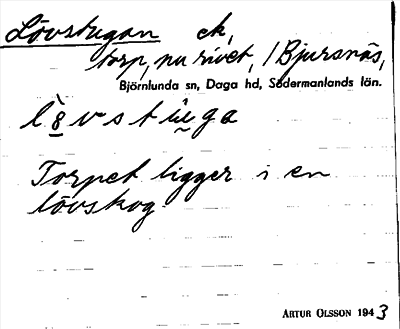 Lövstugan ek,
torp, nu rivet, / Bjursnäs,
Björnlunda sn, Daga hd, Södermanlands län.
Torpet ligger i en
lövskog.
ARTUR OLSSON 1943